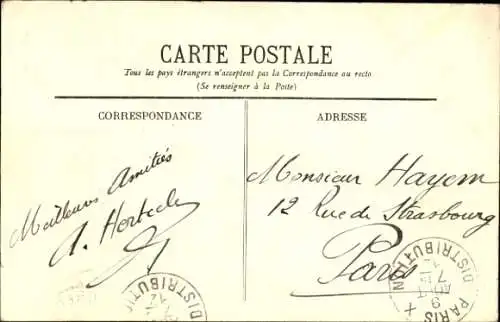 CARTE POSTALE
Tous les pays étrangers n'acceptent pas la Correspondance au recto
(Se renseigner à la Poste)
CORRESPONDANCE
ADRESSE
Meilleures Amitiés
A.
Monsieur Hayem
12 Rue de Strasbourg
Paris
DISTRIBUTION
PARIS
DISTRIBUTI